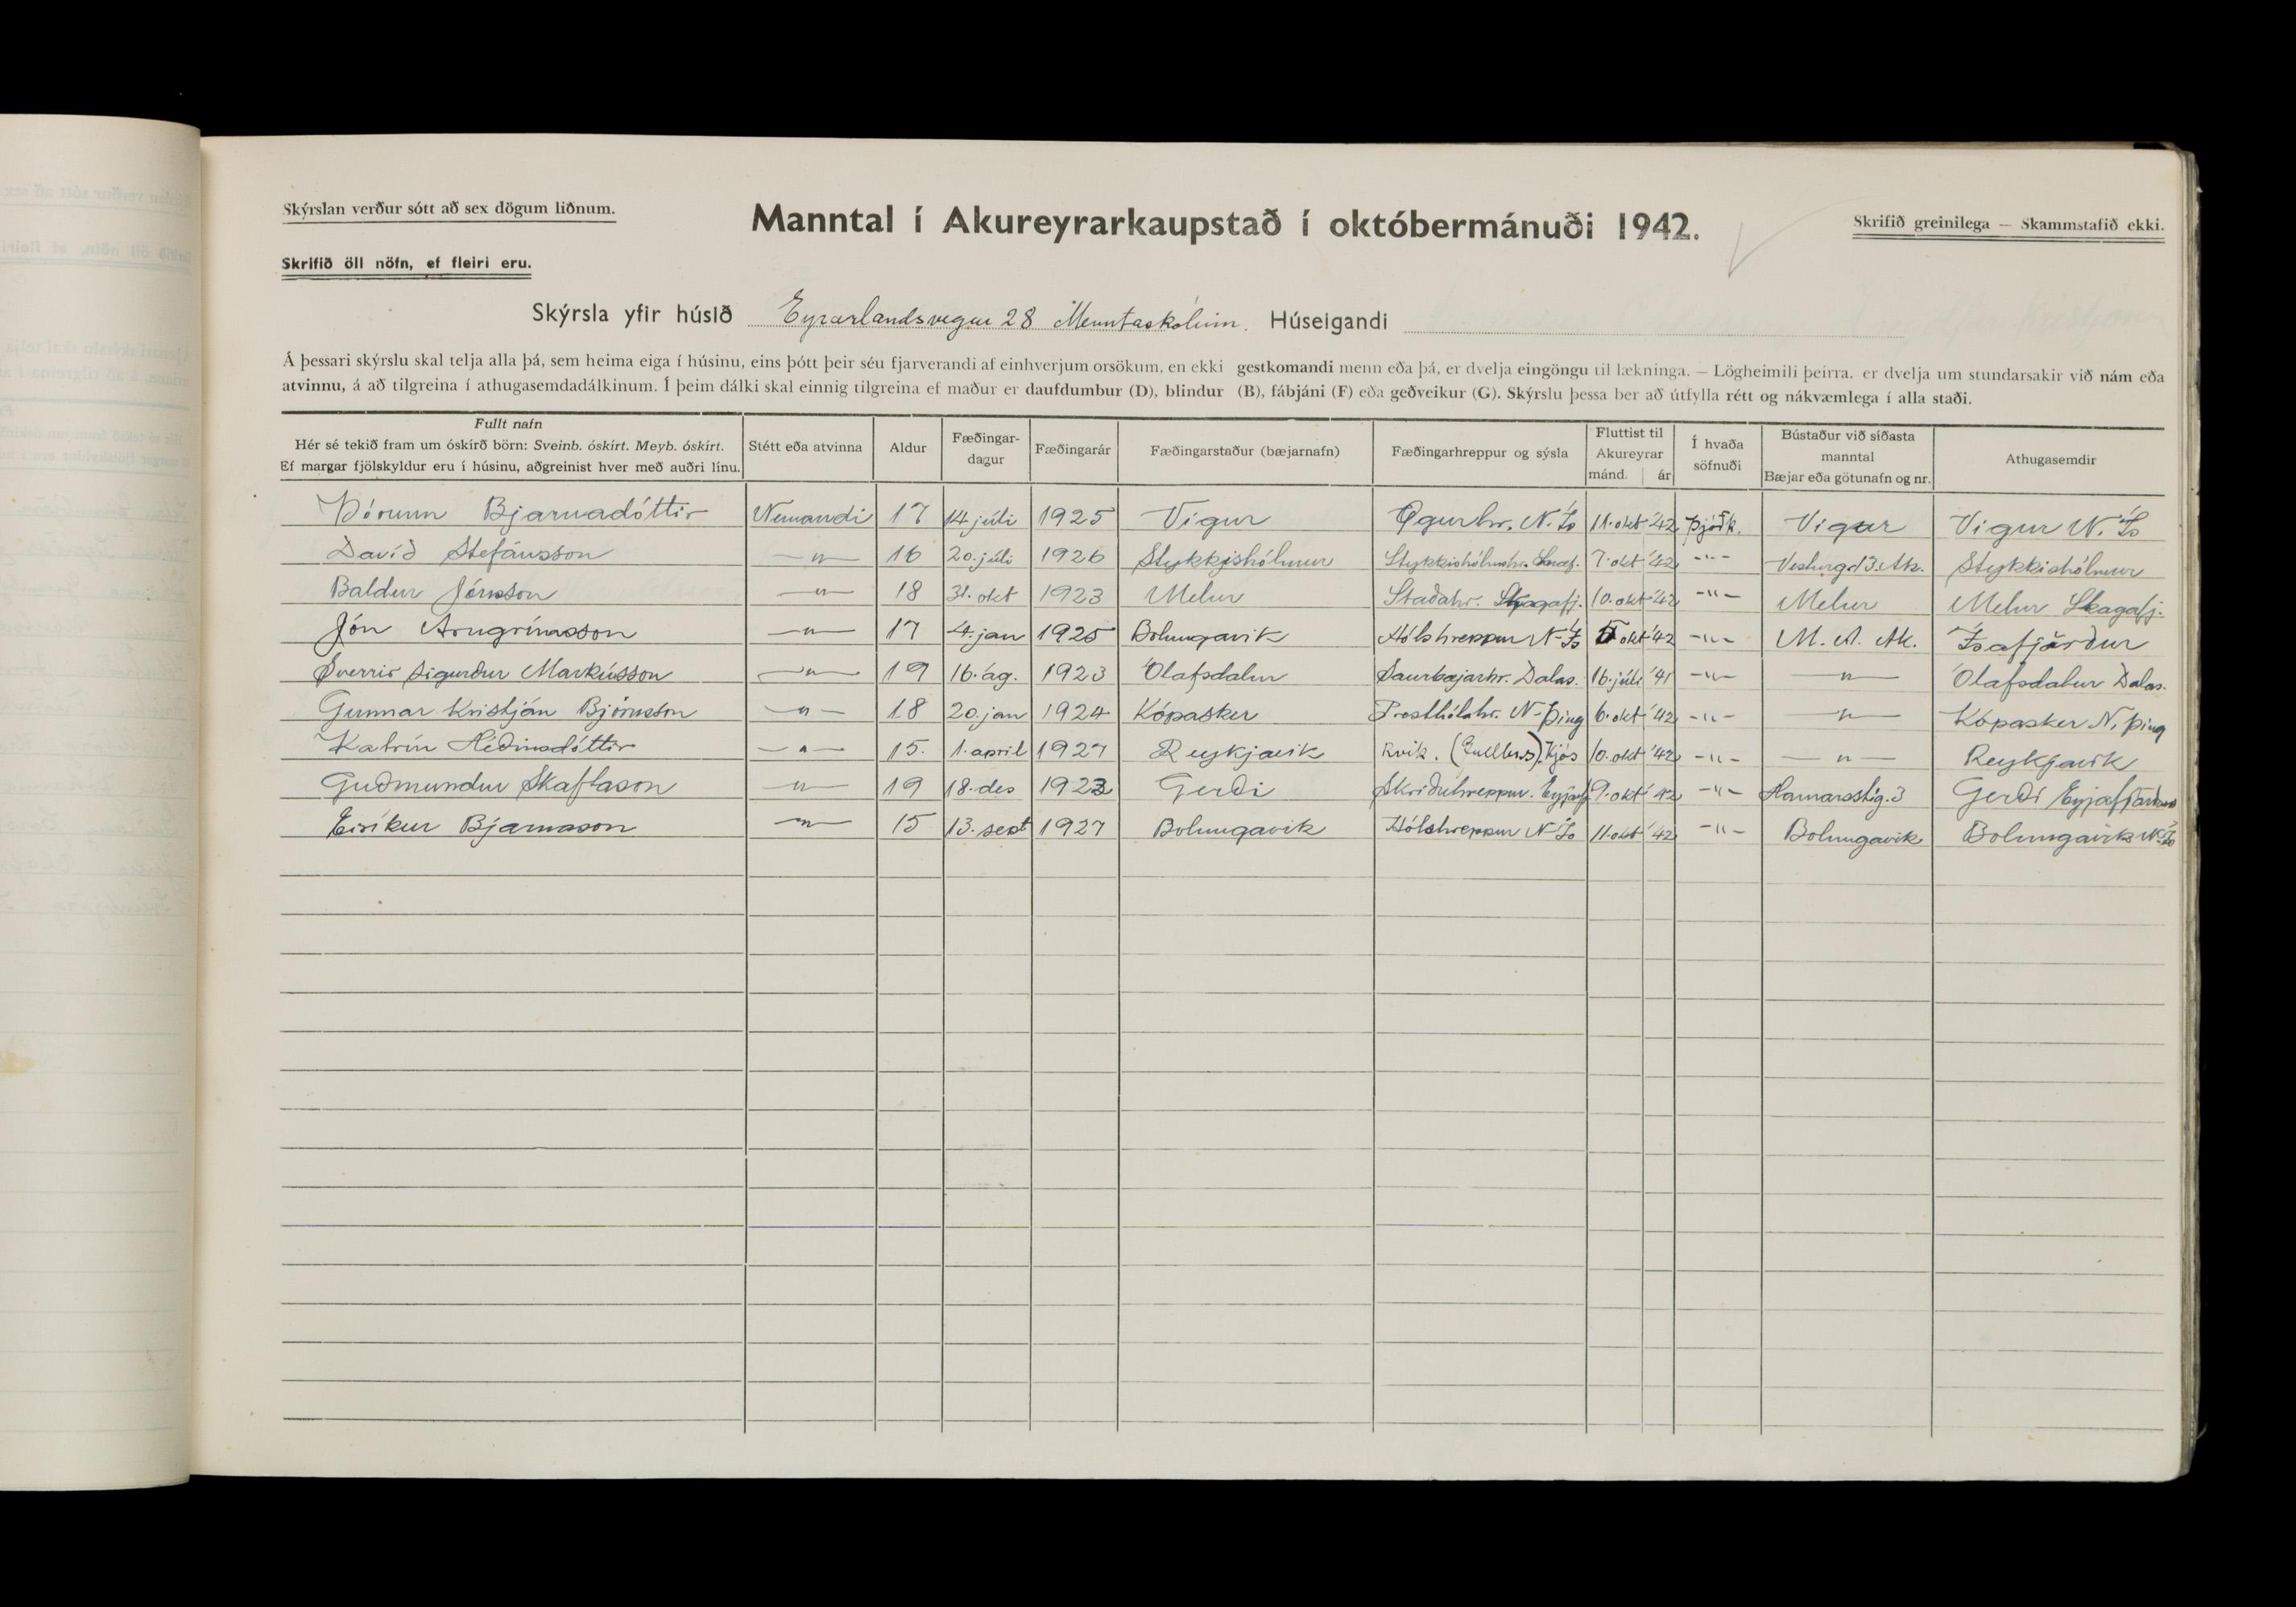 Skýrslan verður sótt að sex dögum liðnum.
Manntal í Akureyrarkaupstað í októbermánuði 1942.
Skrifið greinilega — Skammstafið ekki.
Skrifið öll nöfn, ef fleiri eru.
Skýrsla yfir húsið Eyrarlandsvegur 28 Menntaskólinn. Húseigandi
Á þessari skýrslu skal telja alla þá, sem heima eiga í húsinu, eins þótt þeir séu fjarverandi af einhverjum orsökum, en ekki gestkomandi menn eða þá, er dvelja eingöngu til lækninga. — Lögheimili þeirra. er dvelja um stundarsakir við nám eða
atvinnu, á að tilgreina í athugasemdadálkinum. Í þeim dálki skal einnig tilgreina ef maður er daufdumbur (D), blindur (B), fábjáni (F) eða geðveikur (G). Skýrslu þessa ber að útfylla rétt og nákvæmlega í alla staði.
Fullt nafn
Hér sé tekið fram um óskírð börn: Sveinb. óskírt. Meyb. óskírt.
Ef margar fjölskyldur eru í húsinu, aðgreinist hver með auðri línu.
Stétt eða atvinna
Aldur
Fæðingar-
dagur
Fæðingarár
Fæðingarstaður (bæjarnafn)
Fæðingarhreppur og sýsla
Fluttist til
Akureyrar
mánd. ár
Í hvaða
söfnuði
Bústaður við síðasta
manntal
Bæjar eða götunafn og nr.
Athugasemdir
Þórunn Bjarnadóttir Nemandi 17 14. júlí 1925 Vigur Ögurhr. N.-Ís 11. okt '42 Þjóðk. Vigur Vigur N.-Ís
Davíð Stefánsson —"— 16 20. júlí 1926 Stykkishólmur Stykkishólmshr. 7. okt '42 -"- 13. Ak. Stykkishólmur
Baldur Jónsson —"— 18 31. okt 1923 Melur Staðahr. Skagafj. 10. okt '42 -"- Melur Melur Skagafj.
Jón Arngrímsson —"— 17 4. jan 1925 Bolungavík Hólshreppur N-Ís 5 okt '42 -"- M. A. Ak. Ísafjörður
Sverrir Sigurður Markússon —"— 19 16. ág. 1923 Ólafsdalur Saurbæjarhr. Dalas. 16. júlí '41 -"- —"— Ólafsdalur Dalas.
Gunnar Kristján Björnsson —"— 18 20. jan 1924 Kópasker Presthólahr. N-Þing 6. okt '42 -"- —"— Kópasker N. Þing
Katrín Héðinsdóttir —"— 15. 1. apríl 1927 Reykjavík Rvík. (Gullbr.s) Kjós 10. okt '42 -"- —"— Reykjavík
Guðmundur Skaftason —"— 19 18. des 1923 Gerði Skriðuhreppur. Eyjafj. 9. okt '42 -"- Hamarsstíg. 3 Gerði Eyjafjarðars
Eiríkur Bjarnason —"— 15 13. sept 1927 Bolungavík Hólshreppur N-Ís 11. okt '42 -"- Bolungavík Bolungavík N-Ís